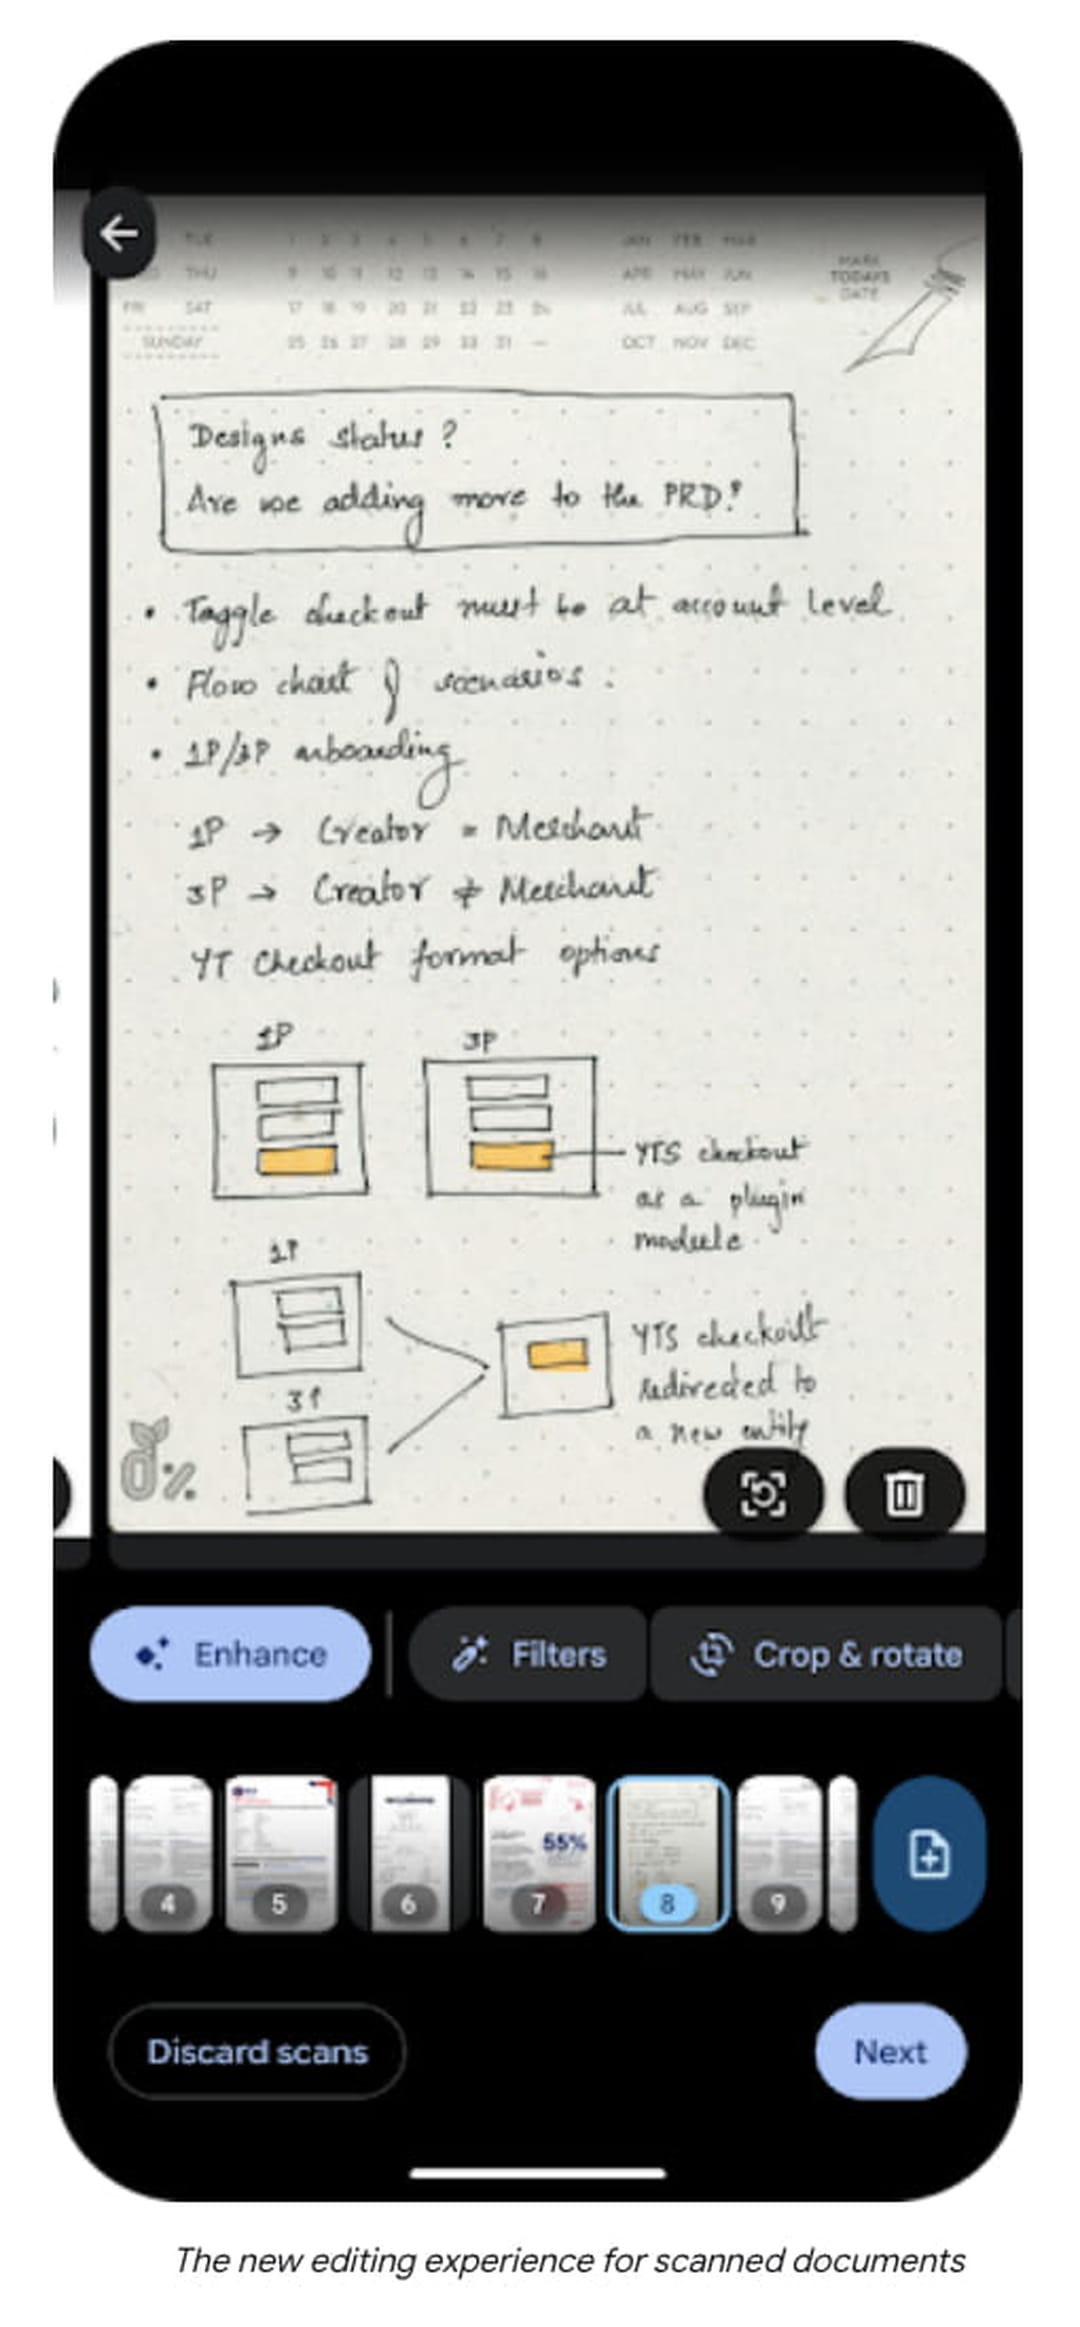 TUE 1 2 3 4 5 6 7 8 JAN FEB MAR
THU 9 10 11 12 13 14 15 16 APR MAY JUN
FRI SAT 17 18 19 20 21 22 23 24 JUL AUG SEP
SUNDAY 25 26 27 28 29 30 31 — OCT NOV DEC
MARK
TODAYS
DATE
Designs status ?
Are we adding more to the PRD?
• Toggle checkout must be at account level
• Flow chart of scenarios.
• 1P/3P onboarding
1P → Creator = Merchant
3P → Creator ≠ Merchant
YT Checkout format options
1P
3P
YTS checkout
as a plugin
module
1P
3P
YTS checkout
redirected to
a new entity
Enhance
Filters
Crop & rotate
55%
4
5
6
7
8
9
Discard scans
Next
The new editing experience for scanned documents